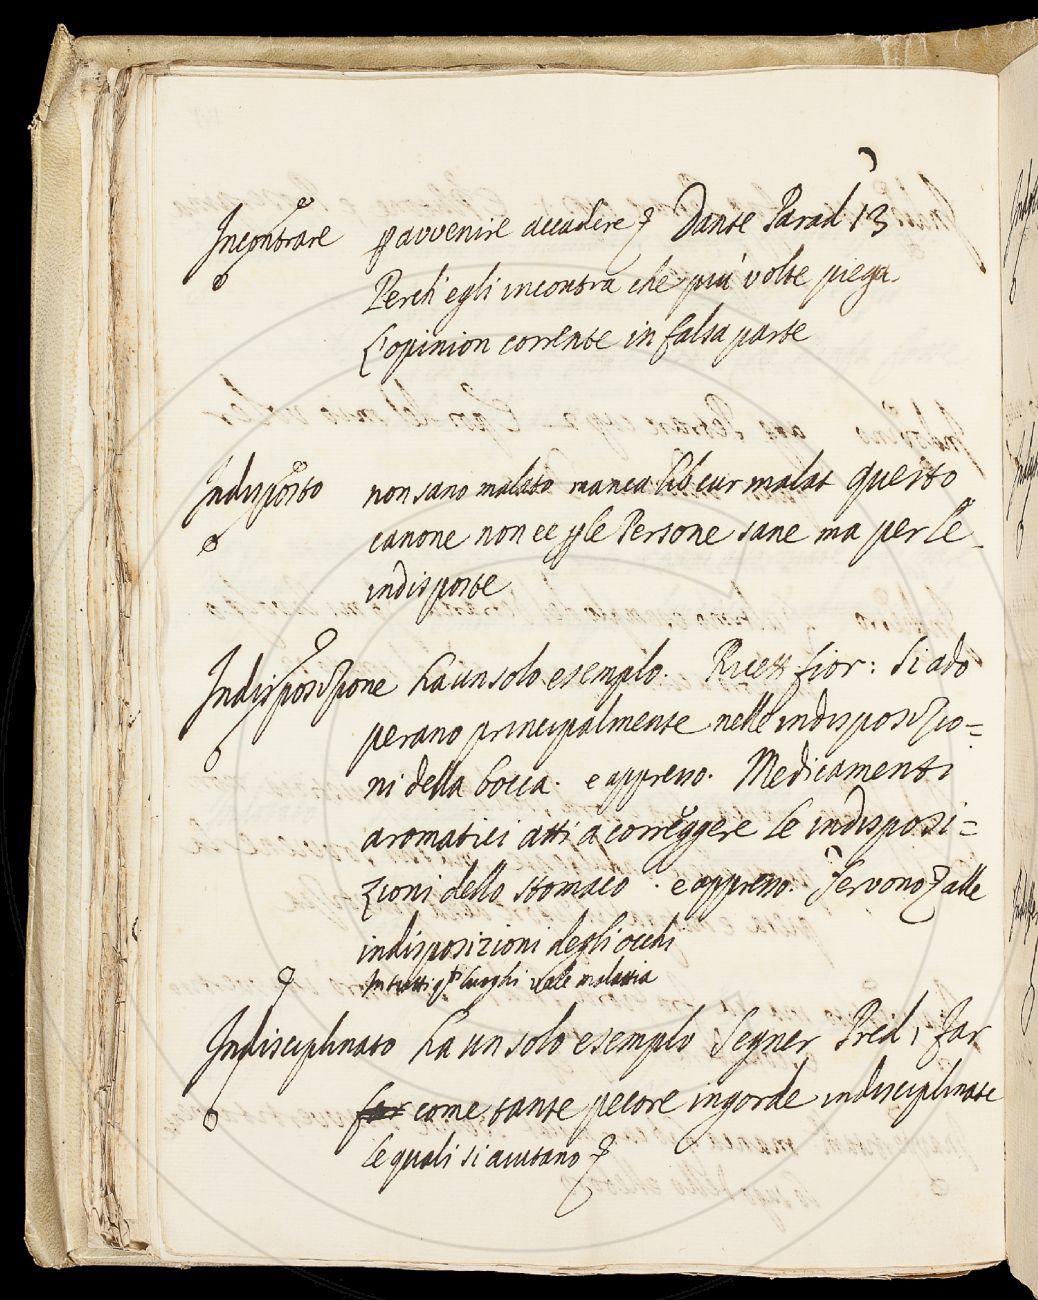 Incontrare per avvenire accadere Dante Parad 13
Perch'egli incontra che più volte piega
L'opinion corrente in falsa parte
Indisposto non sano malato manca lib cur malat questo
canone non ee per le Persone sane ma per le
indisposte
Indisposizione ha un solo esempio. Ricett fior: Si ado
perano principalmente nelle indisposizio=
ni della bocca. e appresso. Medicamenti
aromatici atti a correggere le indisposi=
zioni dello stomaco. e appresso. Servono alle
indisposizioni degli occhi
In tutti luoghi vale malattia
Indisciplinato ha un solo esempio Segner Pred 1 Far
come tante pecore ingorde indisciplinate
le quali si aiutano